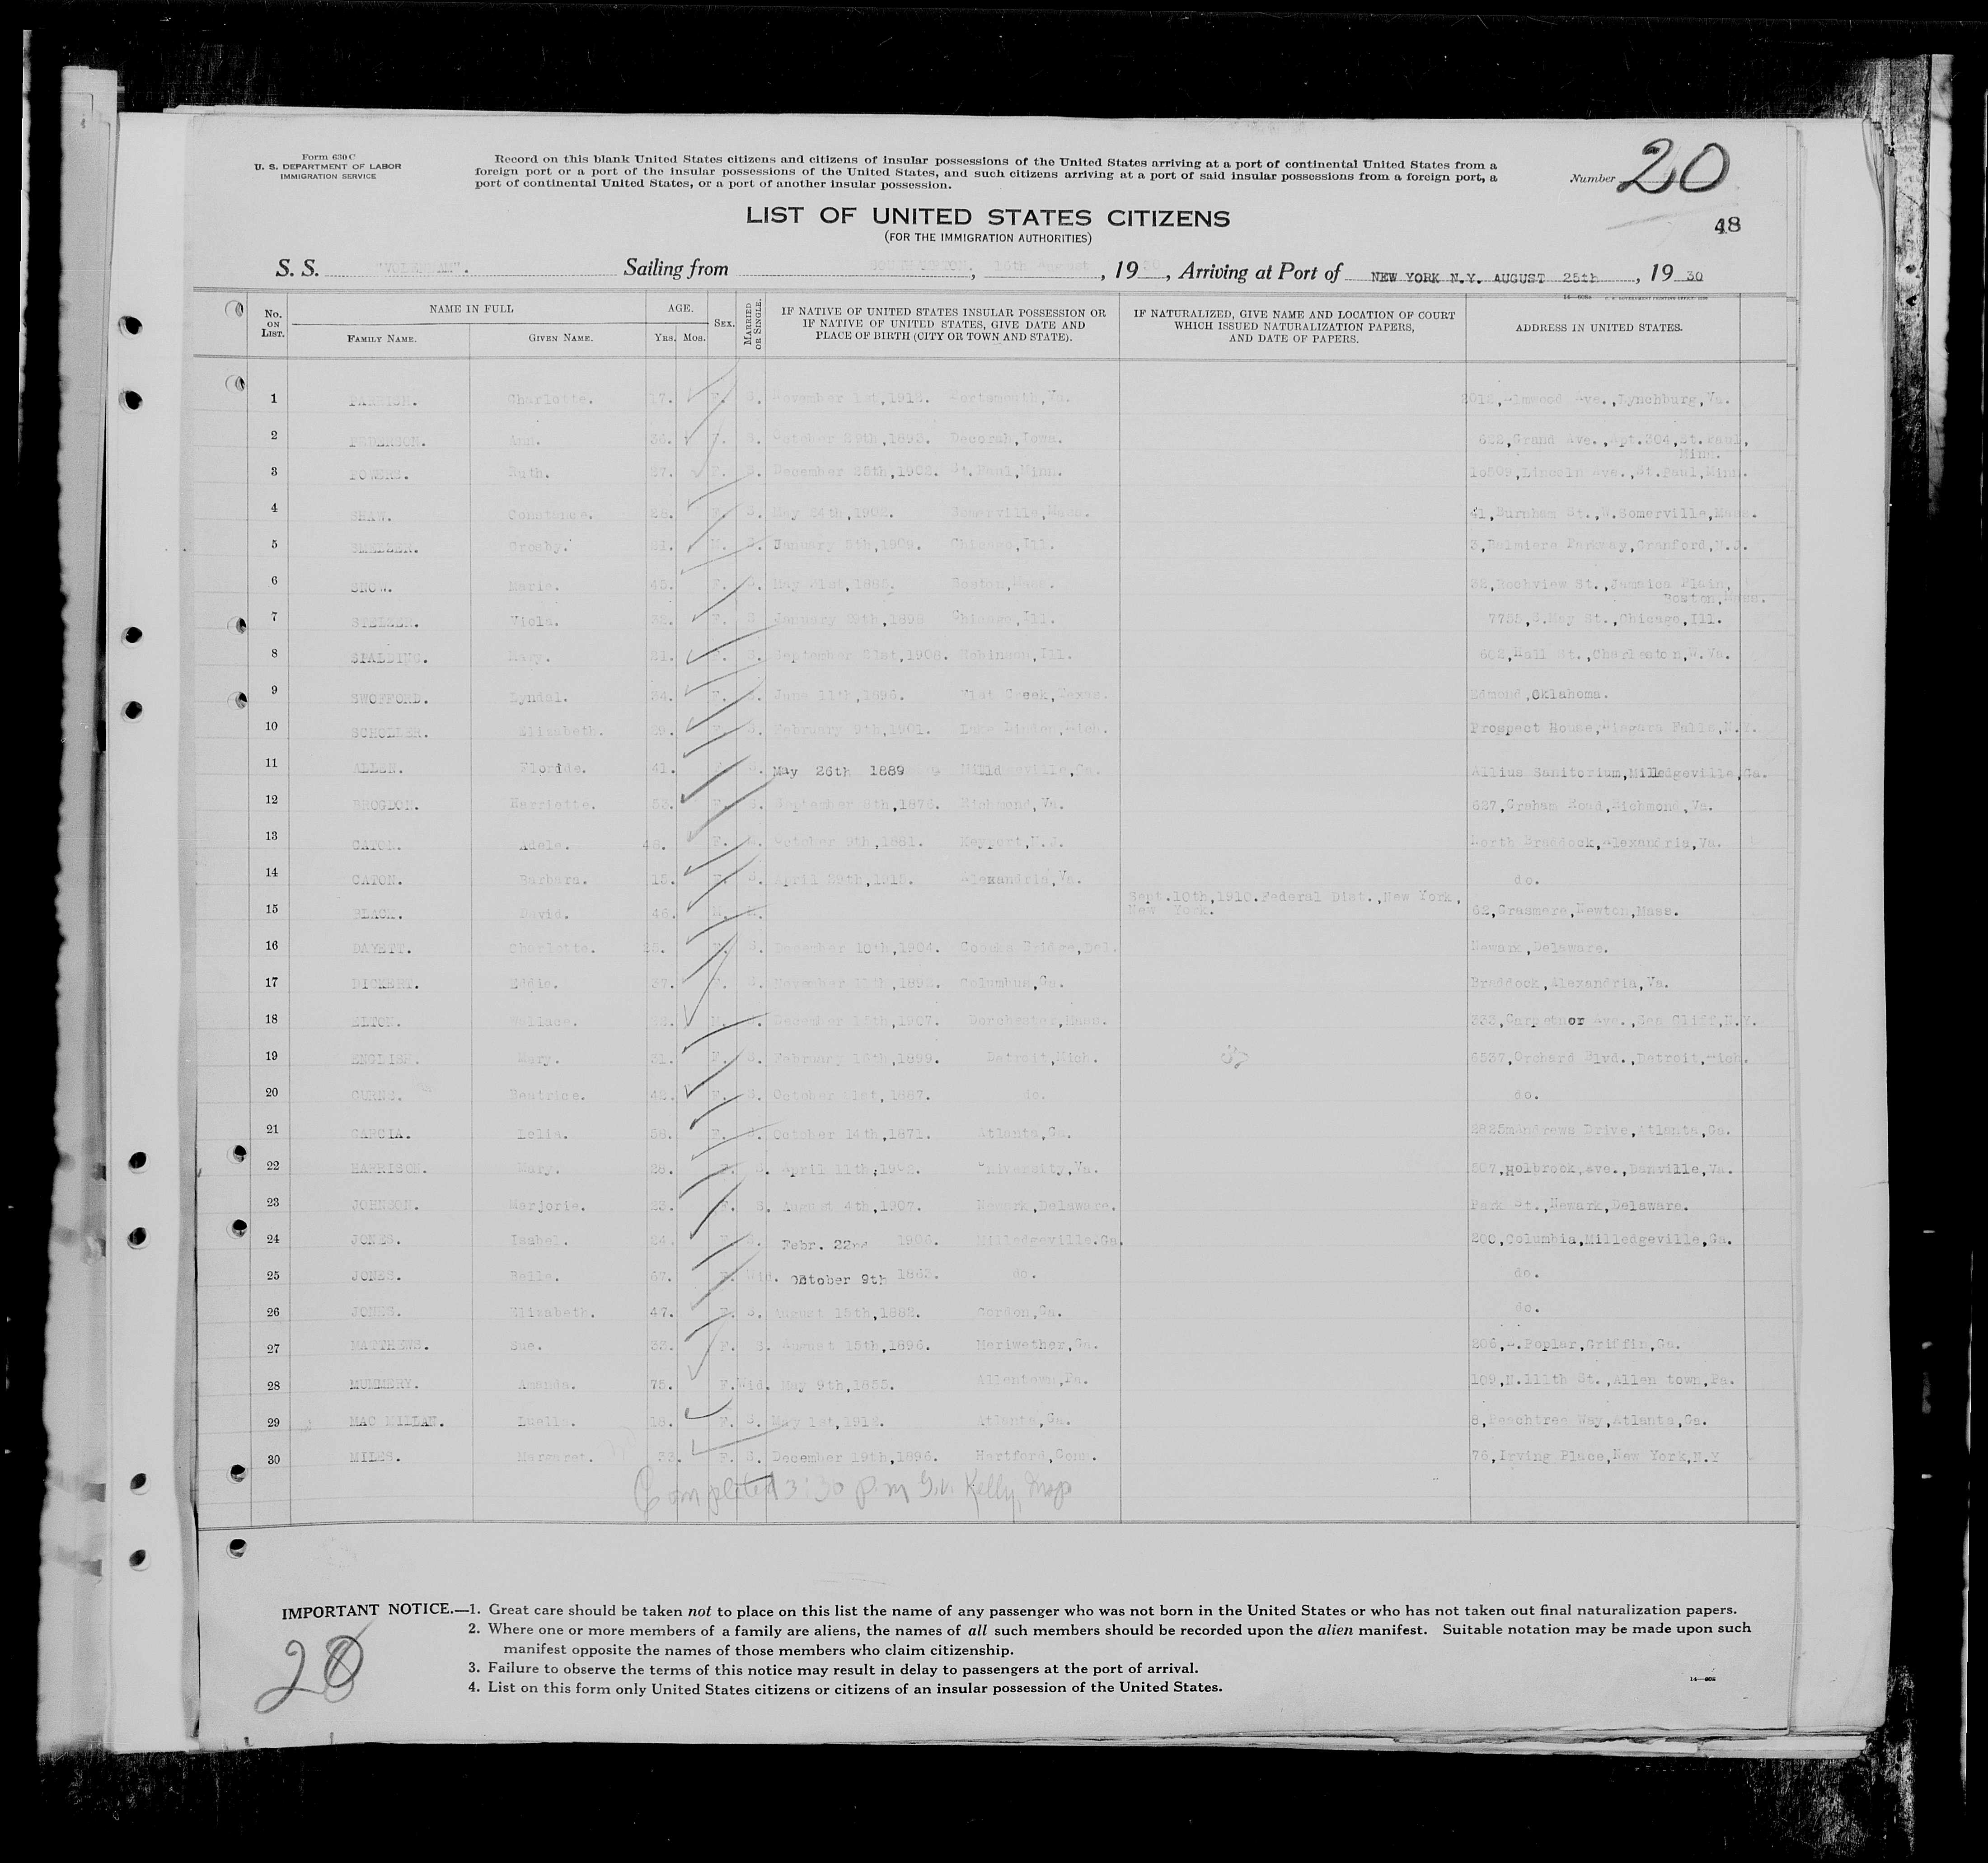 Form 630 C
U. S. DEPARTMENT OF LABOR
IMMIGRATION SERVICE
Record on this blank United States citizens and citizens of insular possessions of the United States arriving at a port of continental United States from a
foreign port or a port of the insular possessions of the United States, and such citizens arriving at a port of said insular possessions from a foreign port, a
port of continental United States, or a port of another insular possession.
Number 20
48
LIST OF UNITED STATES CITIZENS
(FOR THE IMMIGRATION AUTHORITIES)
S. S. "VOLENDAM". Sailing from SOUTHAMPTON, 16th August, 19 30, Arriving at Port of NEW YORK N.Y. AUGUST 25th, 19 30
No. ON LIST. NAME IN FULL FAMILY NAME. GIVEN NAME. AGE. YRS. MOS. SEX. MARRIED OR SINGLE. IF NATIVE OF UNITED STATES INSULAR POSSESSION OR IF NATIVE OF UNITED STATES, GIVE DATE AND PLACE OF BIRTH (CITY OR TOWN AND STATE). IF NATURALIZED, GIVE NAME AND LOCATION OF COURT WHICH ISSUED NATURALIZATION PAPERS, AND DATE OF PAPERS. ADDRESS IN UNITED STATES.
1 PARRISH. Charlotte. 17. F. S. November 1st,1912. Portsmouth,Va. 2018,Elmwood Ave.,Lynchburg,Va.
2 Ann. S. October 29th,1893. Decorah,Iowa. 622,Grand Ave.,Apt.304,St.Paul,
Minn.
3 POWERS. Ruth. 27. F. S. December 25th,1902. St.Paul,Minn. Lincoln Ave.,St.Paul,Minn.
4 SHAW. Constance. F. S. May 24th,190 Somerville,Mass. 41,Burnham St.,W.Somerville,Mass.
5 Crosby. 21. M. S. January 5th,1909. Chicago,Ill. 3,Parkway,Cranford,N.J.
6 SNOW. Marie. 45. F. S. May 31st,1885. Boston,Mass. 32,Rockview St.,Jamaica Plain,
Boston,Mass.
7 STELZER. Viola. 32. F. S. January 29th,1898 Chicago,Ill. 7755,S.May St.,Chicago,Ill.
8 SPALDING. Mary. 21. F. S. September 21st,1908. Robinson,Ill. 602,Hall St.,Charleston,W.Va.
9 SWOFFORD. Lyndal. 34. F. S. June 11th,1896. Flat Creek,Texas. Edmond,Oklahoma.
10 SCHOLLER. Elizabeth. 29. F. S. February 9th,1901. Lake Linden,Mich. Prospect House,Niagara Falls,N.Y.
11 ALLEN. Floride. 41. F. S. May 26th 1889 Milldgeville,Ga. Allius Sanitorium,Milledgeville,Ga.
12 BROGDON. Harriette. 53. F. S. September 8th,1876. Richmond,Va. 627,Graham Road,Richmond,Va.
13 CATON. Adele. 48. F. M. October 9th,1881. Keyport,N.J. North Braddock,Alexandria,Va.
14 CATON. Barbara. 15. F. S. April 29th,1915. Alexandria,Va. do.
15 BLACK. David. 46. M. M. Sept.10th,1910.Federal Dist.,New York,
New York. 62,Grasmere,Newton,Mass.
16 DAYETT. Charlotte. 25. F. S. December 10th,1904. Coochs Bridge,Del. Newark,Delaware.
17 DICKERT. Eddie. 37. F. S. November 11th,1892. Columbus,Ga. Braddock,Alexandria,Va.
18 ELTON. Wallace. 22. M. S. December 15th,1907. Dorchester,Mass. 333,Carpetnor Ave.,Sea Cliff,N.Y.
19 ENGLISH. Mary. 31. F. S. February 16th,1899. Detroit,Mich. 6537,Orchard Blvd.,Detroit,Mich.
20 Beatrice. 42. F. S. October 21st,1887. do. do.
21 GARCIA. Lelia. 58. F. October 14th,1871. Atlanta,Ga. 2825mAndrews Drive,Atlanta,Ga.
22 HARRISON. Mary. 28. F. S. April 11th,1902. University,Va. 507,Holbrook,Ave.,Danville,Va.
23 JOHNSON. Marjorie. 23. F. S. August 4th,1907. Newark,Delaware. Park St.,Newark,Delaware.
24 JONES. Isabel. 24. F. S. Febr. 22nd 1906. Milledgeville.Ga. 200,Columbia,Milledgeville,Ga.
25 JONES. Belle. 67. F. Wid. October 9th 1863. do. do.
26 JONES. Elizabeth. 47. F. S. August 15th,1882. Gordon,Ga. do.
27 MATTHEWS. Sue. 33. F. S. August 15th,1896. Meriwether,Ga. 206,Poplar,Griffin,Ga.
28 MUMMERY. Amanda. 75. F. Wid. May 9th,1855. Allentown,Pa. 109,N.111th St.,Allen town,Pa.
29 MAC MILLAN. Luella. 18. F. S. May 1st,1912. Atlanta,Ga. 8,Peachtree Way,Atlanta,Ga.
30 MILES. Margaret. 33. F. S. December 19th,1896. Hartford,Conn. 76,Irving Place,New York,N.Y
Completed 3:30 p.m Kelly, Insp
IMPORTANT NOTICE.—1. Great care should be taken not to place on this list the name of any passenger who was not born in the United States or who has not taken out final naturalization papers.
2. Where one or more members of a family are aliens, the names of all such members should be recorded upon the alien manifest. Suitable notation may be made upon such
manifest opposite the names of those members who claim citizenship.
3. Failure to observe the terms of this notice may result in delay to passengers at the port of arrival.
4. List on this form only United States citizens or citizens of an insular possession of the United States.
20